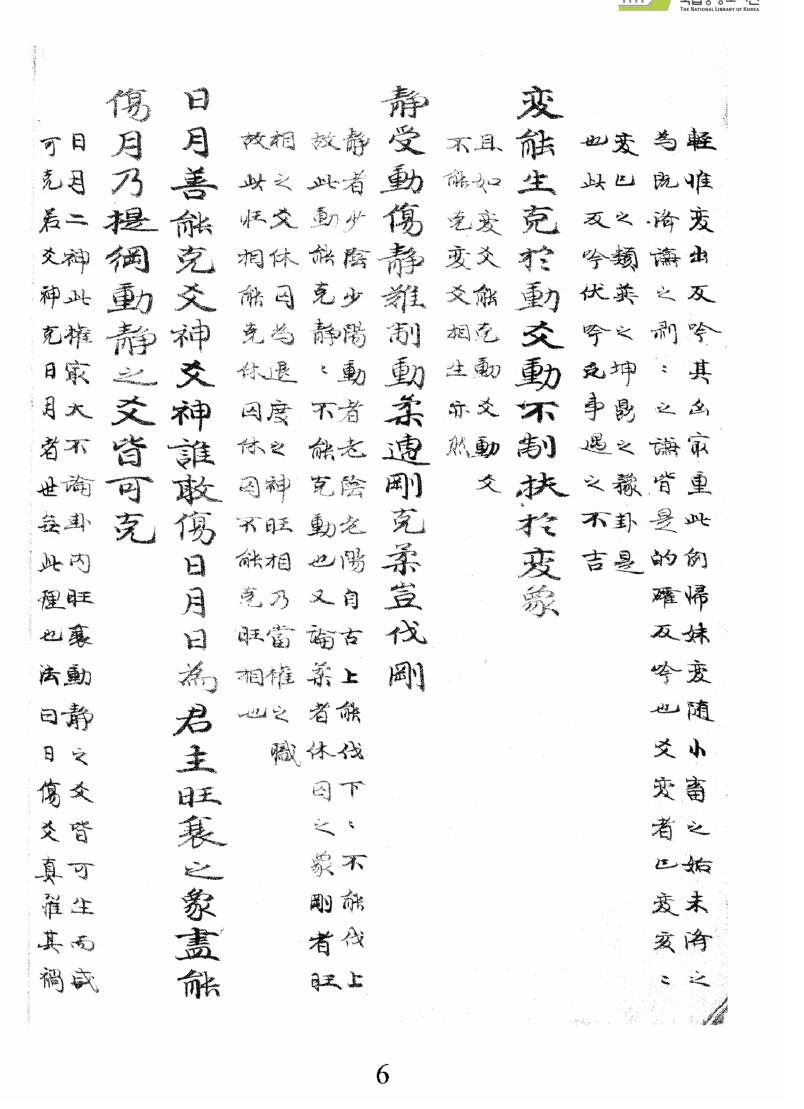 THE NATIONAL LIBRARY OF KOREA
輕惟変出反吟其凶㝡重此例帰妹変随小畜之姤未済之
為既済謙之剥〻之謙皆是的確反吟也爻変者巳変亥〻
変巳之類巽之坤觀之豫卦是
也此反吟伏吟克事遇之不吉
変能生克於動爻動不制扶於変象
且如変爻能克動爻動爻
不能克変爻相生亦然
靜受動傷靜難制動柔遭剛克柔豈伐剛
靜者少陰少陽動者老陰老陽自古上能伐下〻不能伐上
故此動能克靜〻不能克動也又論柔者休囚之象剛者旺
相之爻休囚為退度之神旺相乃當權之職
故此旺相能克休囚休囚不能克旺相也
日月善能克爻神爻神誰敢傷日月日為君主旺衰之象盡能
傷月乃提綱動靜之爻皆可克
日月二神此權㝡大不論卦內旺衰動靜之爻皆可生而或
可克若爻神克日月者世無此理也法曰日傷爻真罹其禍
6